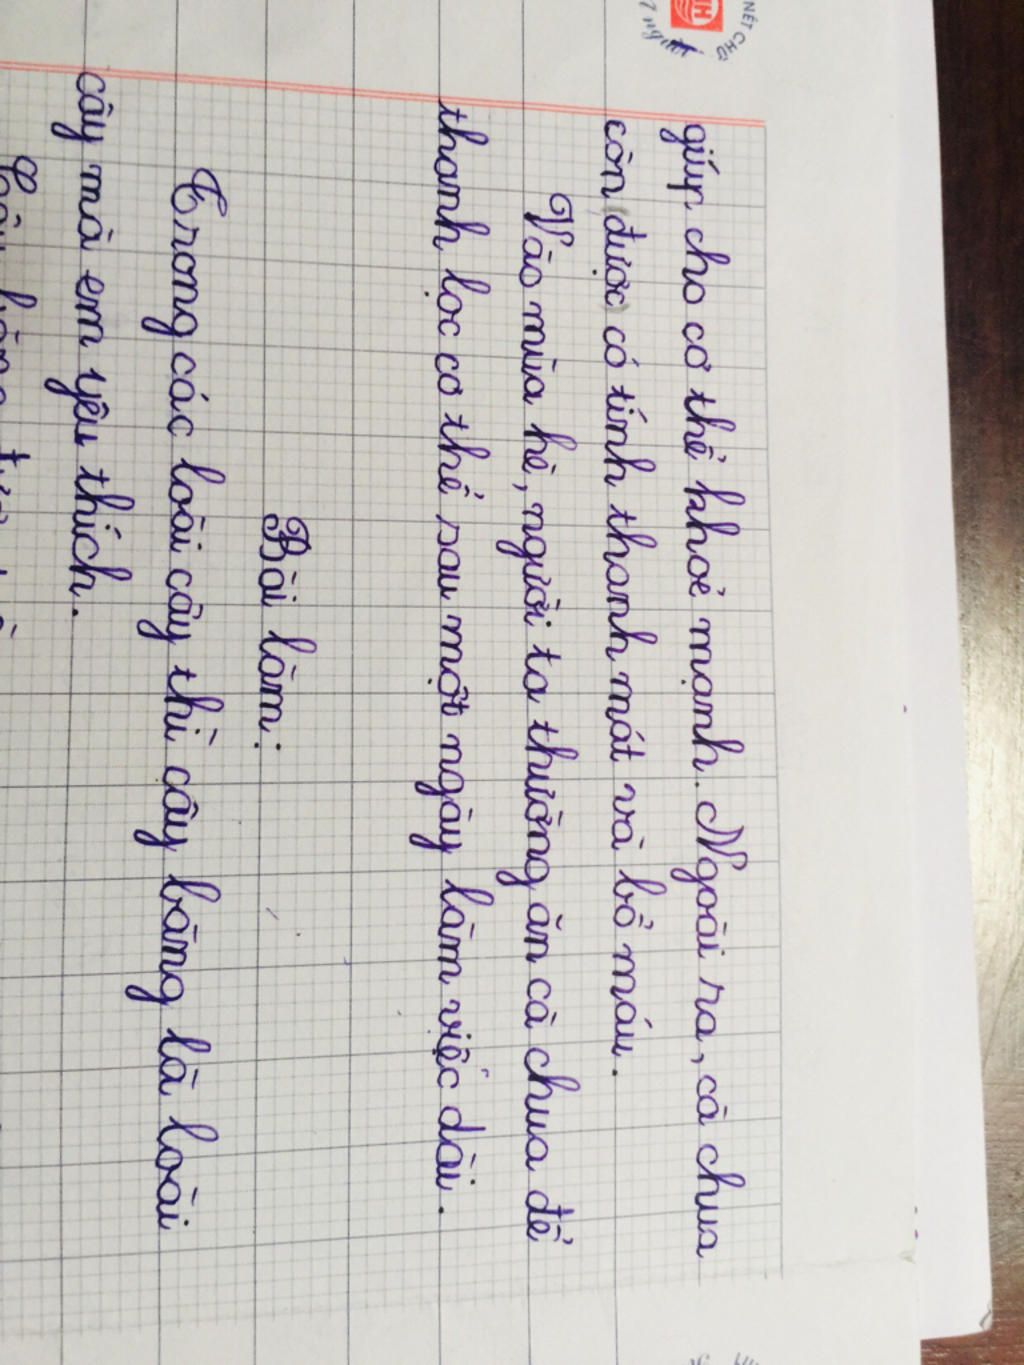 NÉT CHỮ
người
giúp cho cơ thể khoẻ mạnh. Ngoài ra, cà chua
còn (được) có tính thanh mát và bổ máu.
Vào mùa hè, người ta thường ăn cà chua để
thanh lọc cơ thể sau một ngày làm việc dài.
Bài làm:
Trong các loài cây thì cây bàng là loài
cây mà em yêu thích.